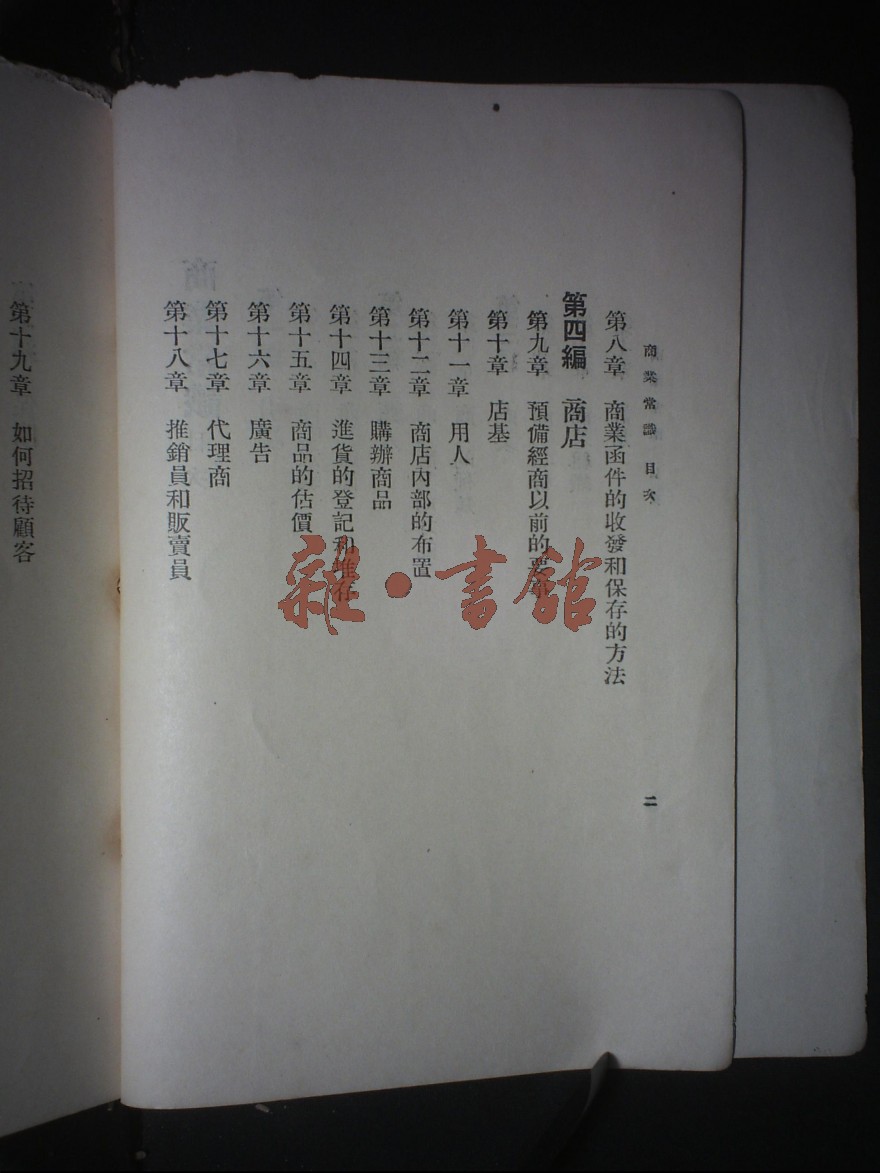 商業常識 目次
二
第八章 商業函件的收發和保存的方法
第四編 商店
第九章 預備經商以前的要
第十章 店基
第十一章 用人
第十二章 商店內部的布置
第十三章 購辦商品
第十四章 進貨的登記和堆存
第十五章 商品的估價
第十六章 廣告
第十七章 代理商
第十八章 推銷員和販賣員
第十九章 如何招待顧客
雜·書館